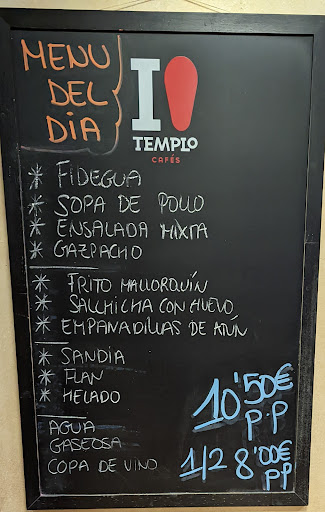 MENU
DEL
DIA
I
TEMPLO
CAFÉS
* FIDEGUA
* SOPA DE POLLO
* ENSALADA MIXTA
* GAZPACHO
* FRITO MALLORQUÍN
* SALCHICHA CON HUEVO
* EMPANADILLAS DE ATÚN
* SANDIA
* FLAN
* HELADO
10'50€
P.P
AGUA
GASEOSA
COPA DE VINO
1/2 8'00€
PP